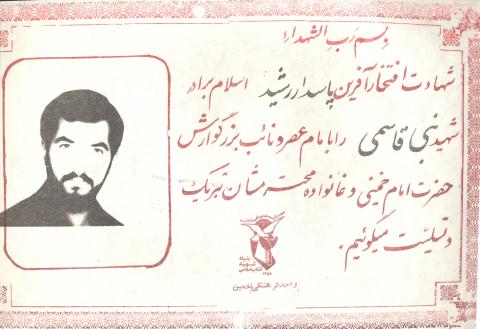 بسم رب الشهداء
شهادت افتخار آفرین پاسدار رشید اسلام برادر
شهید نبی قاسمی را با مام عصر و نائب بزرگوارش
حضرت امام خمینی و خانواده محترمشان تبریک
و تسلیت میگوئیم.
بنیاد
شهید
انقلاب اسلامی
واحد فرهنگی خمین